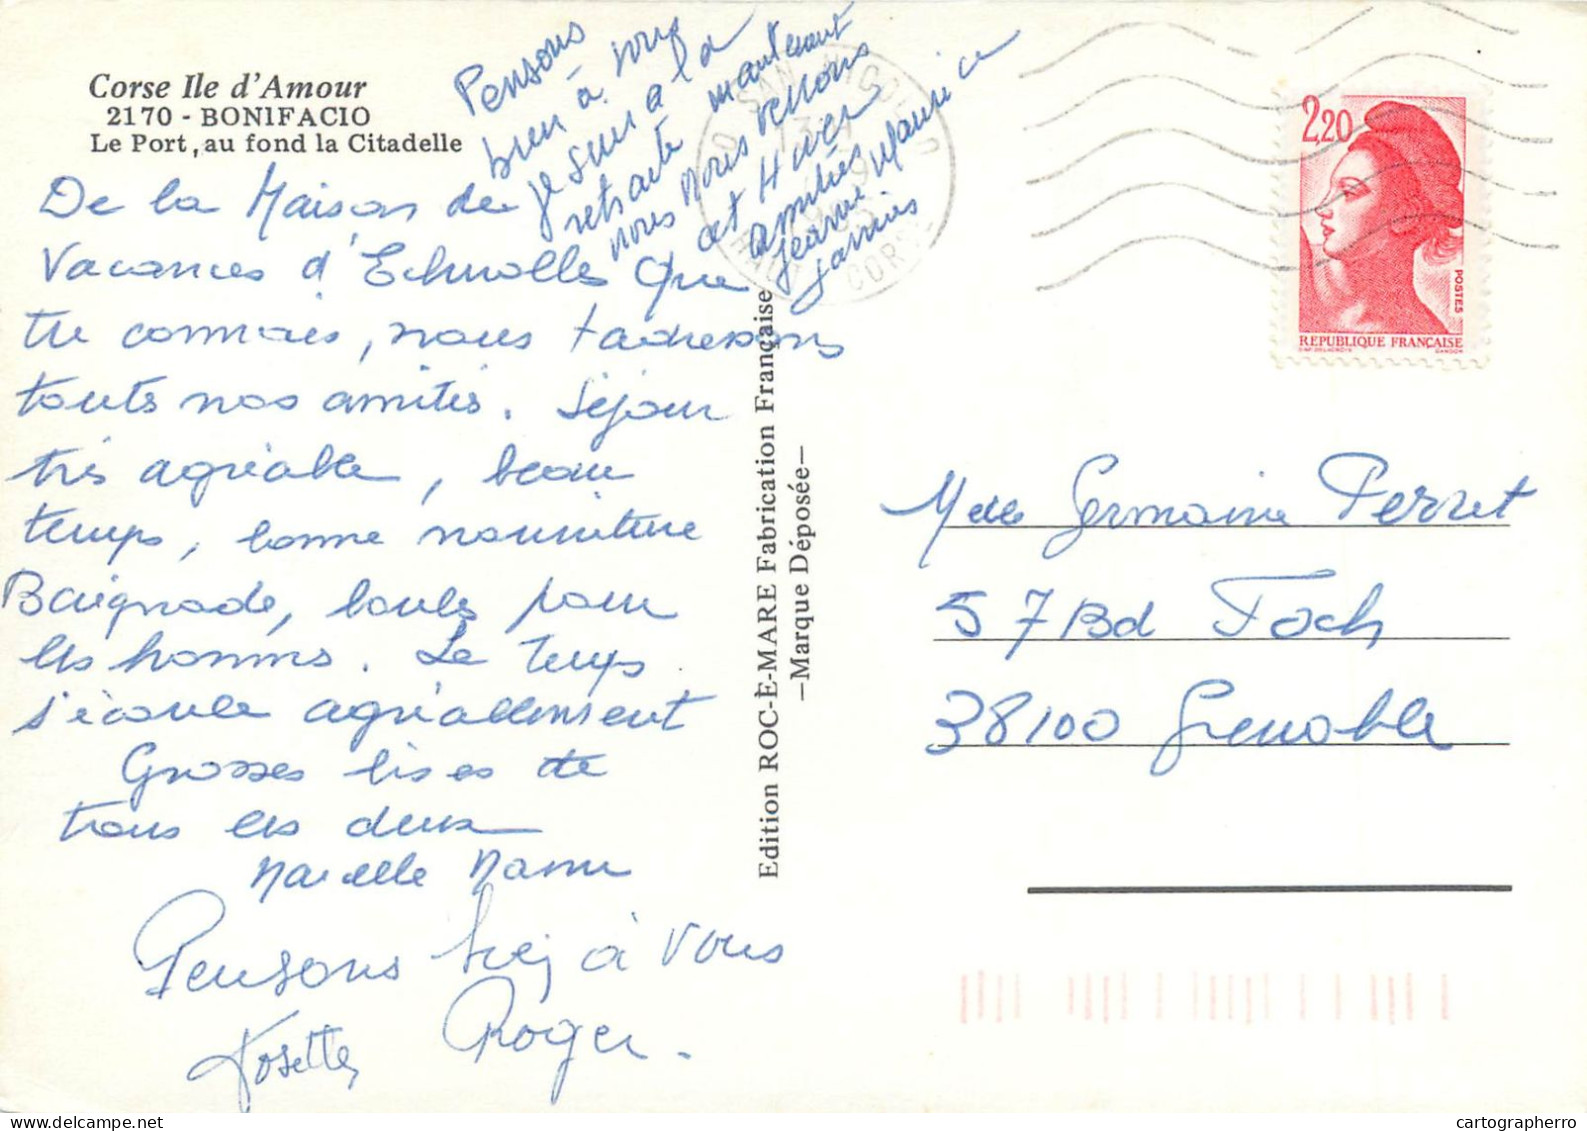 Corse Ile d'Amour
2170 - BONIFACIO
Le Port, au fond la Citadelle
De la Maison de
Vacances d'Echirolles que
tu connais, nous t'adressons
toutes nos amitiés. Séjour
très agréable, beau
temps, bonne nourriture
Baignade, boules pour
les hommes. Le temps
s'écoule agréablement
Grosses bises de
tous les deux
Marcelle
Pensons bien à vous
Josette Roger.
Pensons
bien à vous
Je suis à la
retraite maintenant
nous nous verrons
cet Hiver
amitiés
Jeanne Maurice
Edition ROC-E-MARE Fabrication Française
—Marque Déposée—
SAN NICOLAO
HAUTE CORSE
2,20
POSTES
REPUBLIQUE FRANÇAISE
Melle Germaine Perret
57 Bd Foch
38100 Grenoble
cartographerro